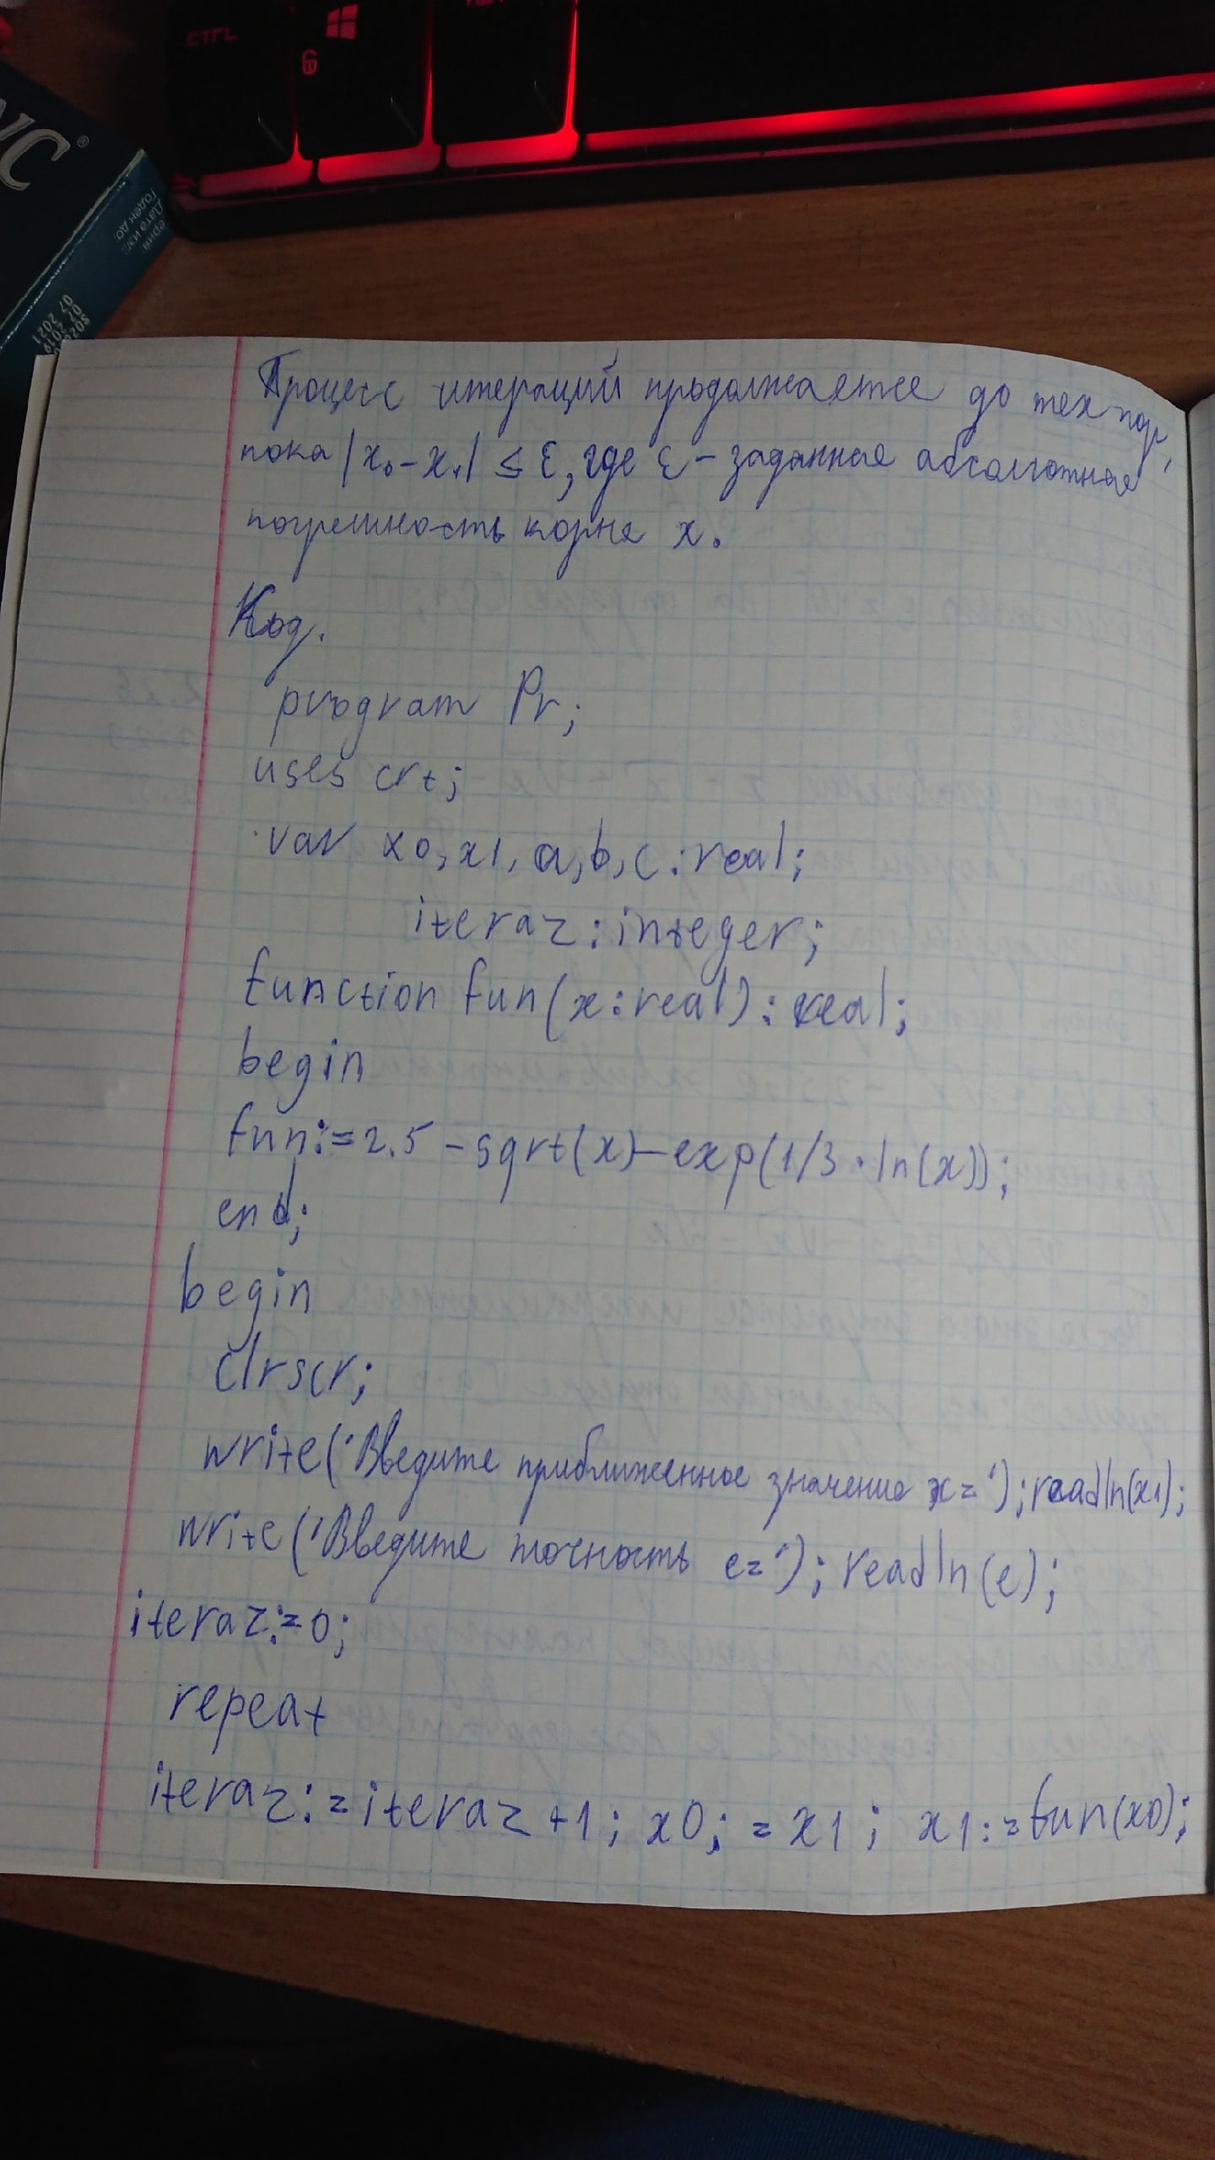 CTRL
6
NC®
Серия
Дата изг.
Годен до:
07 2019
07 2021
Процесс итераций продолжается до тех пор,
пока |x₀-x₁| ≤ ε, где ε - заданная абсолютная
погрешность корня x.
Код.
program Pr;
uses crt;
var x0,x1,a,b,c:real;
iteraz:integer;
function fun(x:real):real;
begin
fun:=2.5-sqrt(x)-exp(1/3·ln(x));
end;
begin
clrscr;
write('Введите приближенное значение x=');readln(x1);
write('Введите точность e=');readln(e);
iteraz:=0;
repeat
iteraz:=iteraz+1; x0;=x1; x1:=fun(x0);